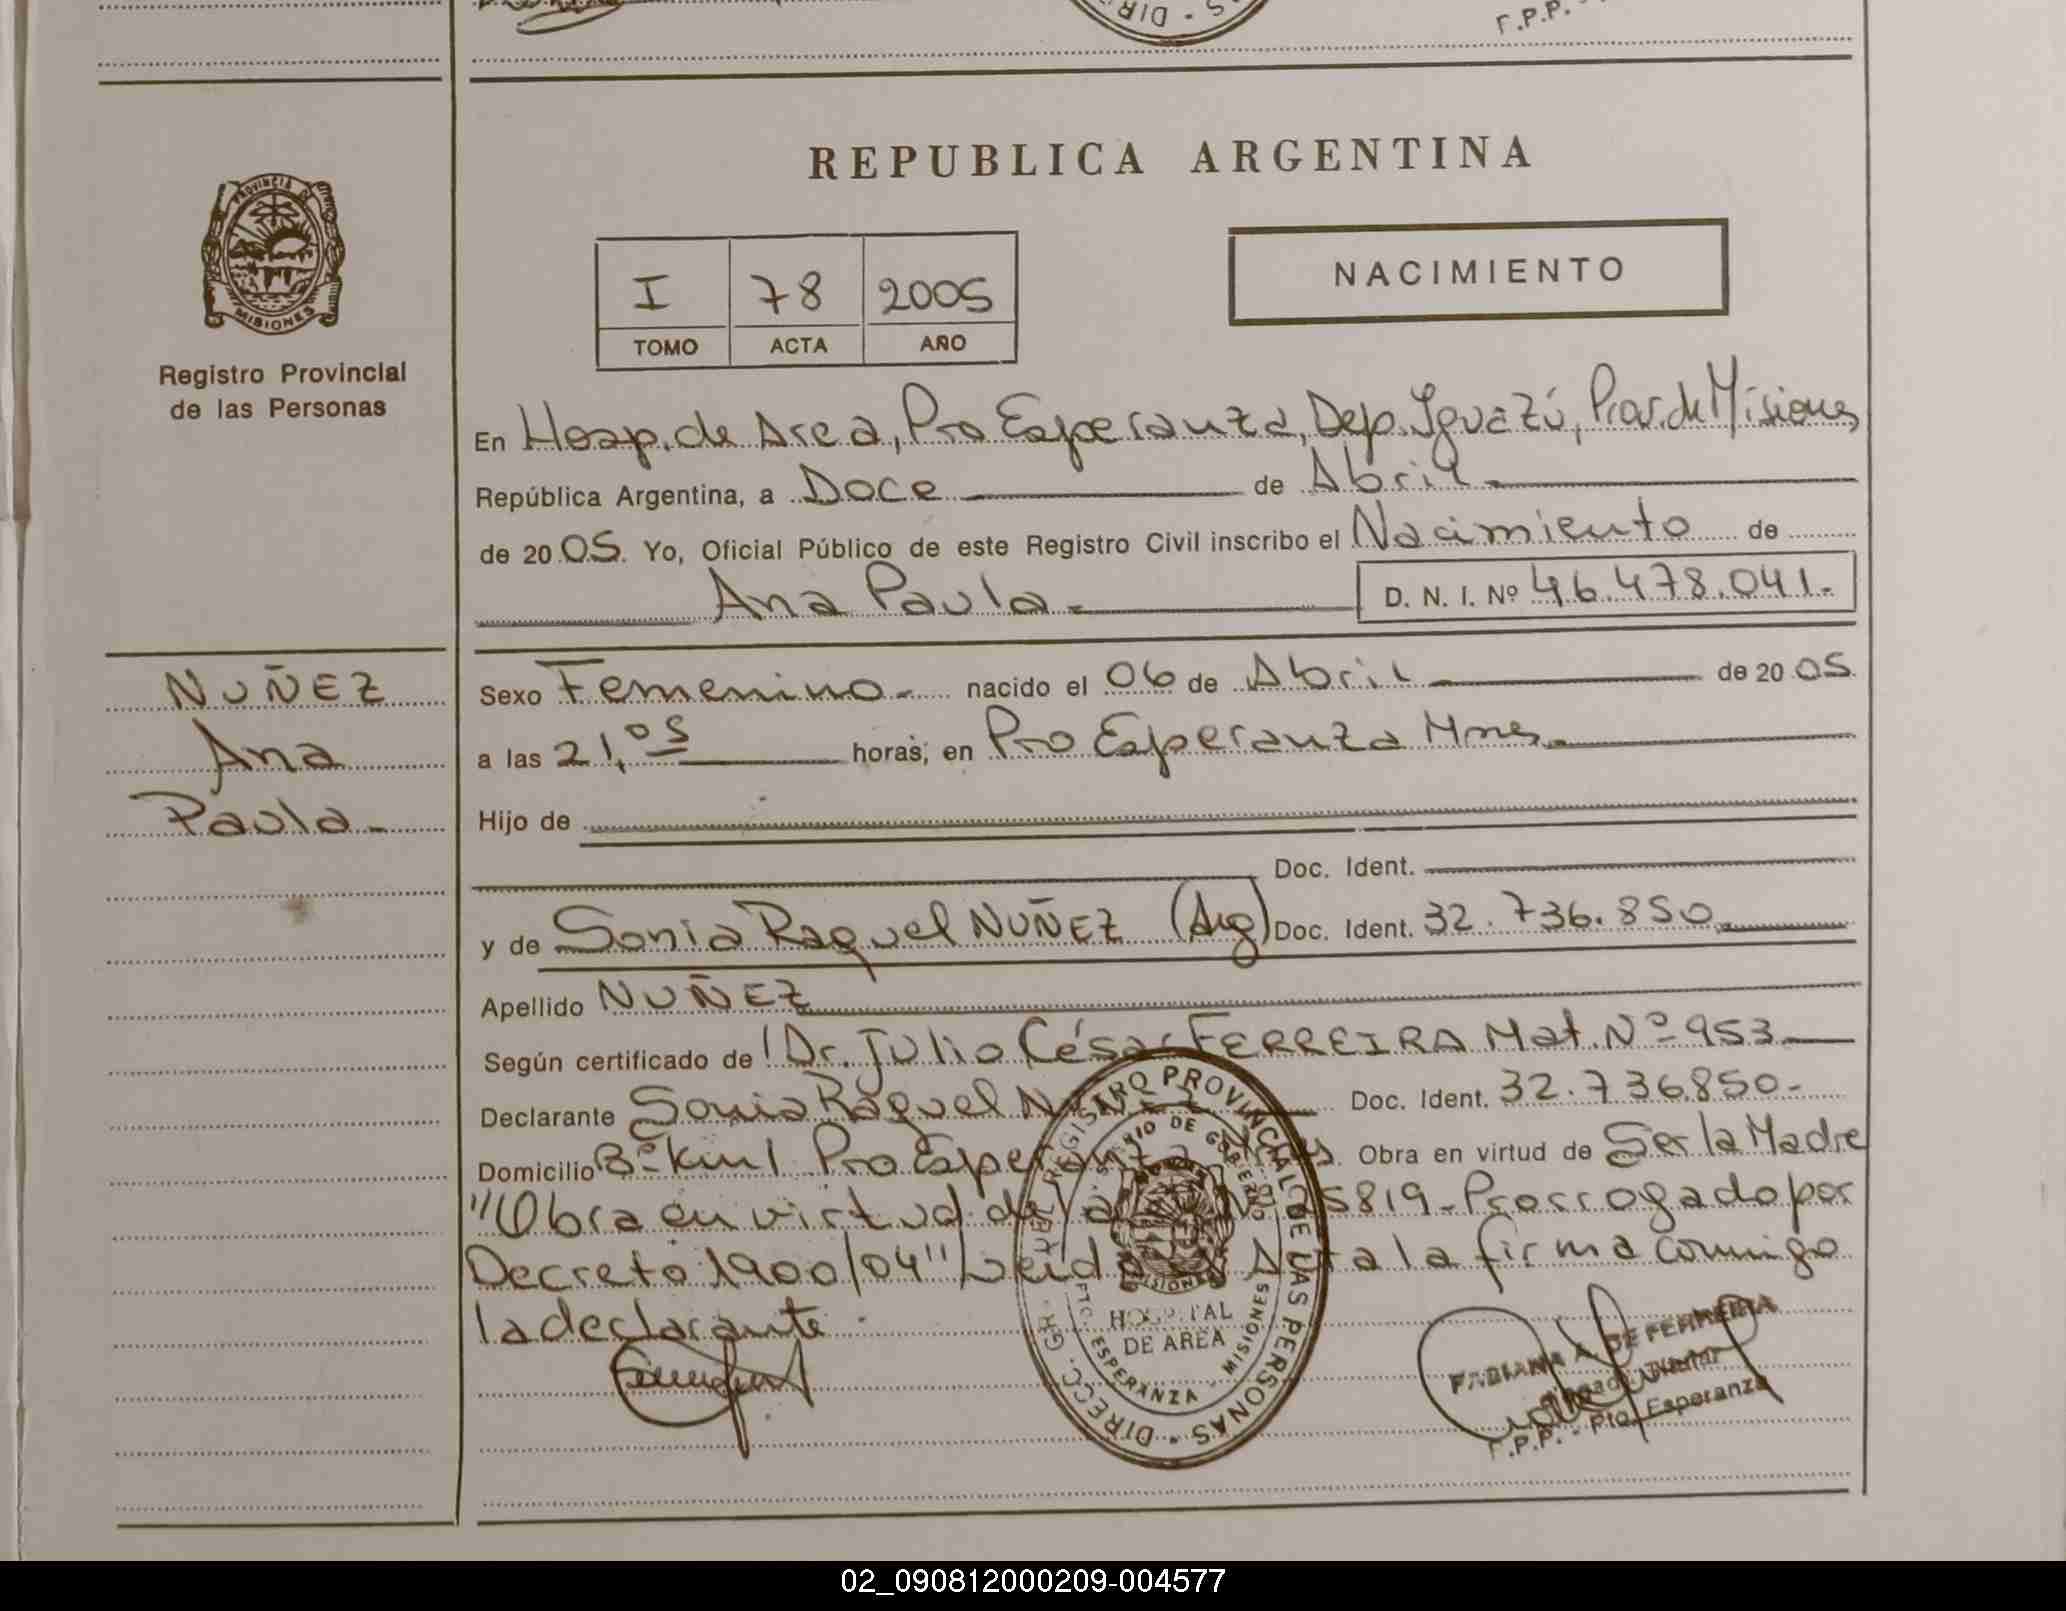 F.P.P. -
DIR
REPUBLICA ARGENTINA
PROVINCIA DE
MISIONES
Registro Provincial
de las Personas
I 78 2005
TOMO ACTA AÑO
NACIMIENTO
En Hosp. de Area, Pto Esperanza, Dep. Iguazú, Prov. de Misiones
República Argentina, a Doce de Abril
de 2005. Yo, Oficial Público de este Registro Civil inscribo el Nacimiento de
Ana Paula D. N. I. Nº 46.478.041.-
NUÑEZ
Ana
Paula -
Sexo Femenino nacido el 06 de Abril de 2005
a las 21,05 horas, en Pto Esperanza Mnes.
Hijo de
Doc. Ident.
y de Sonia Raquel NUÑEZ (Arg) Doc. Ident. 32.736.850
Apellido NUÑEZ
Según certificado de Dr. Julio César FERREIRA Mat. Nº 953
Declarante Sonia Raquel Doc. Ident. 32.736.850-
Domicilio Bº Pto Esperanza Obra en virtud de Ser la Madre
"Obra en virtud de la 25819 - Prorrogado por
Decreto 1900/04" Leida Acta la firma conmigo
la declarante.
REGISTRO PROVINCIAL DE LAS PERSONAS - DIRECC. GRAL.
MISIONES
HOSPITAL
DE AREA
PTO. ESPERANZA - MISIONES
FABIANA A. DE FERREIRA
R.P.P. - Pto. Esperanza
02_090812000209-004577